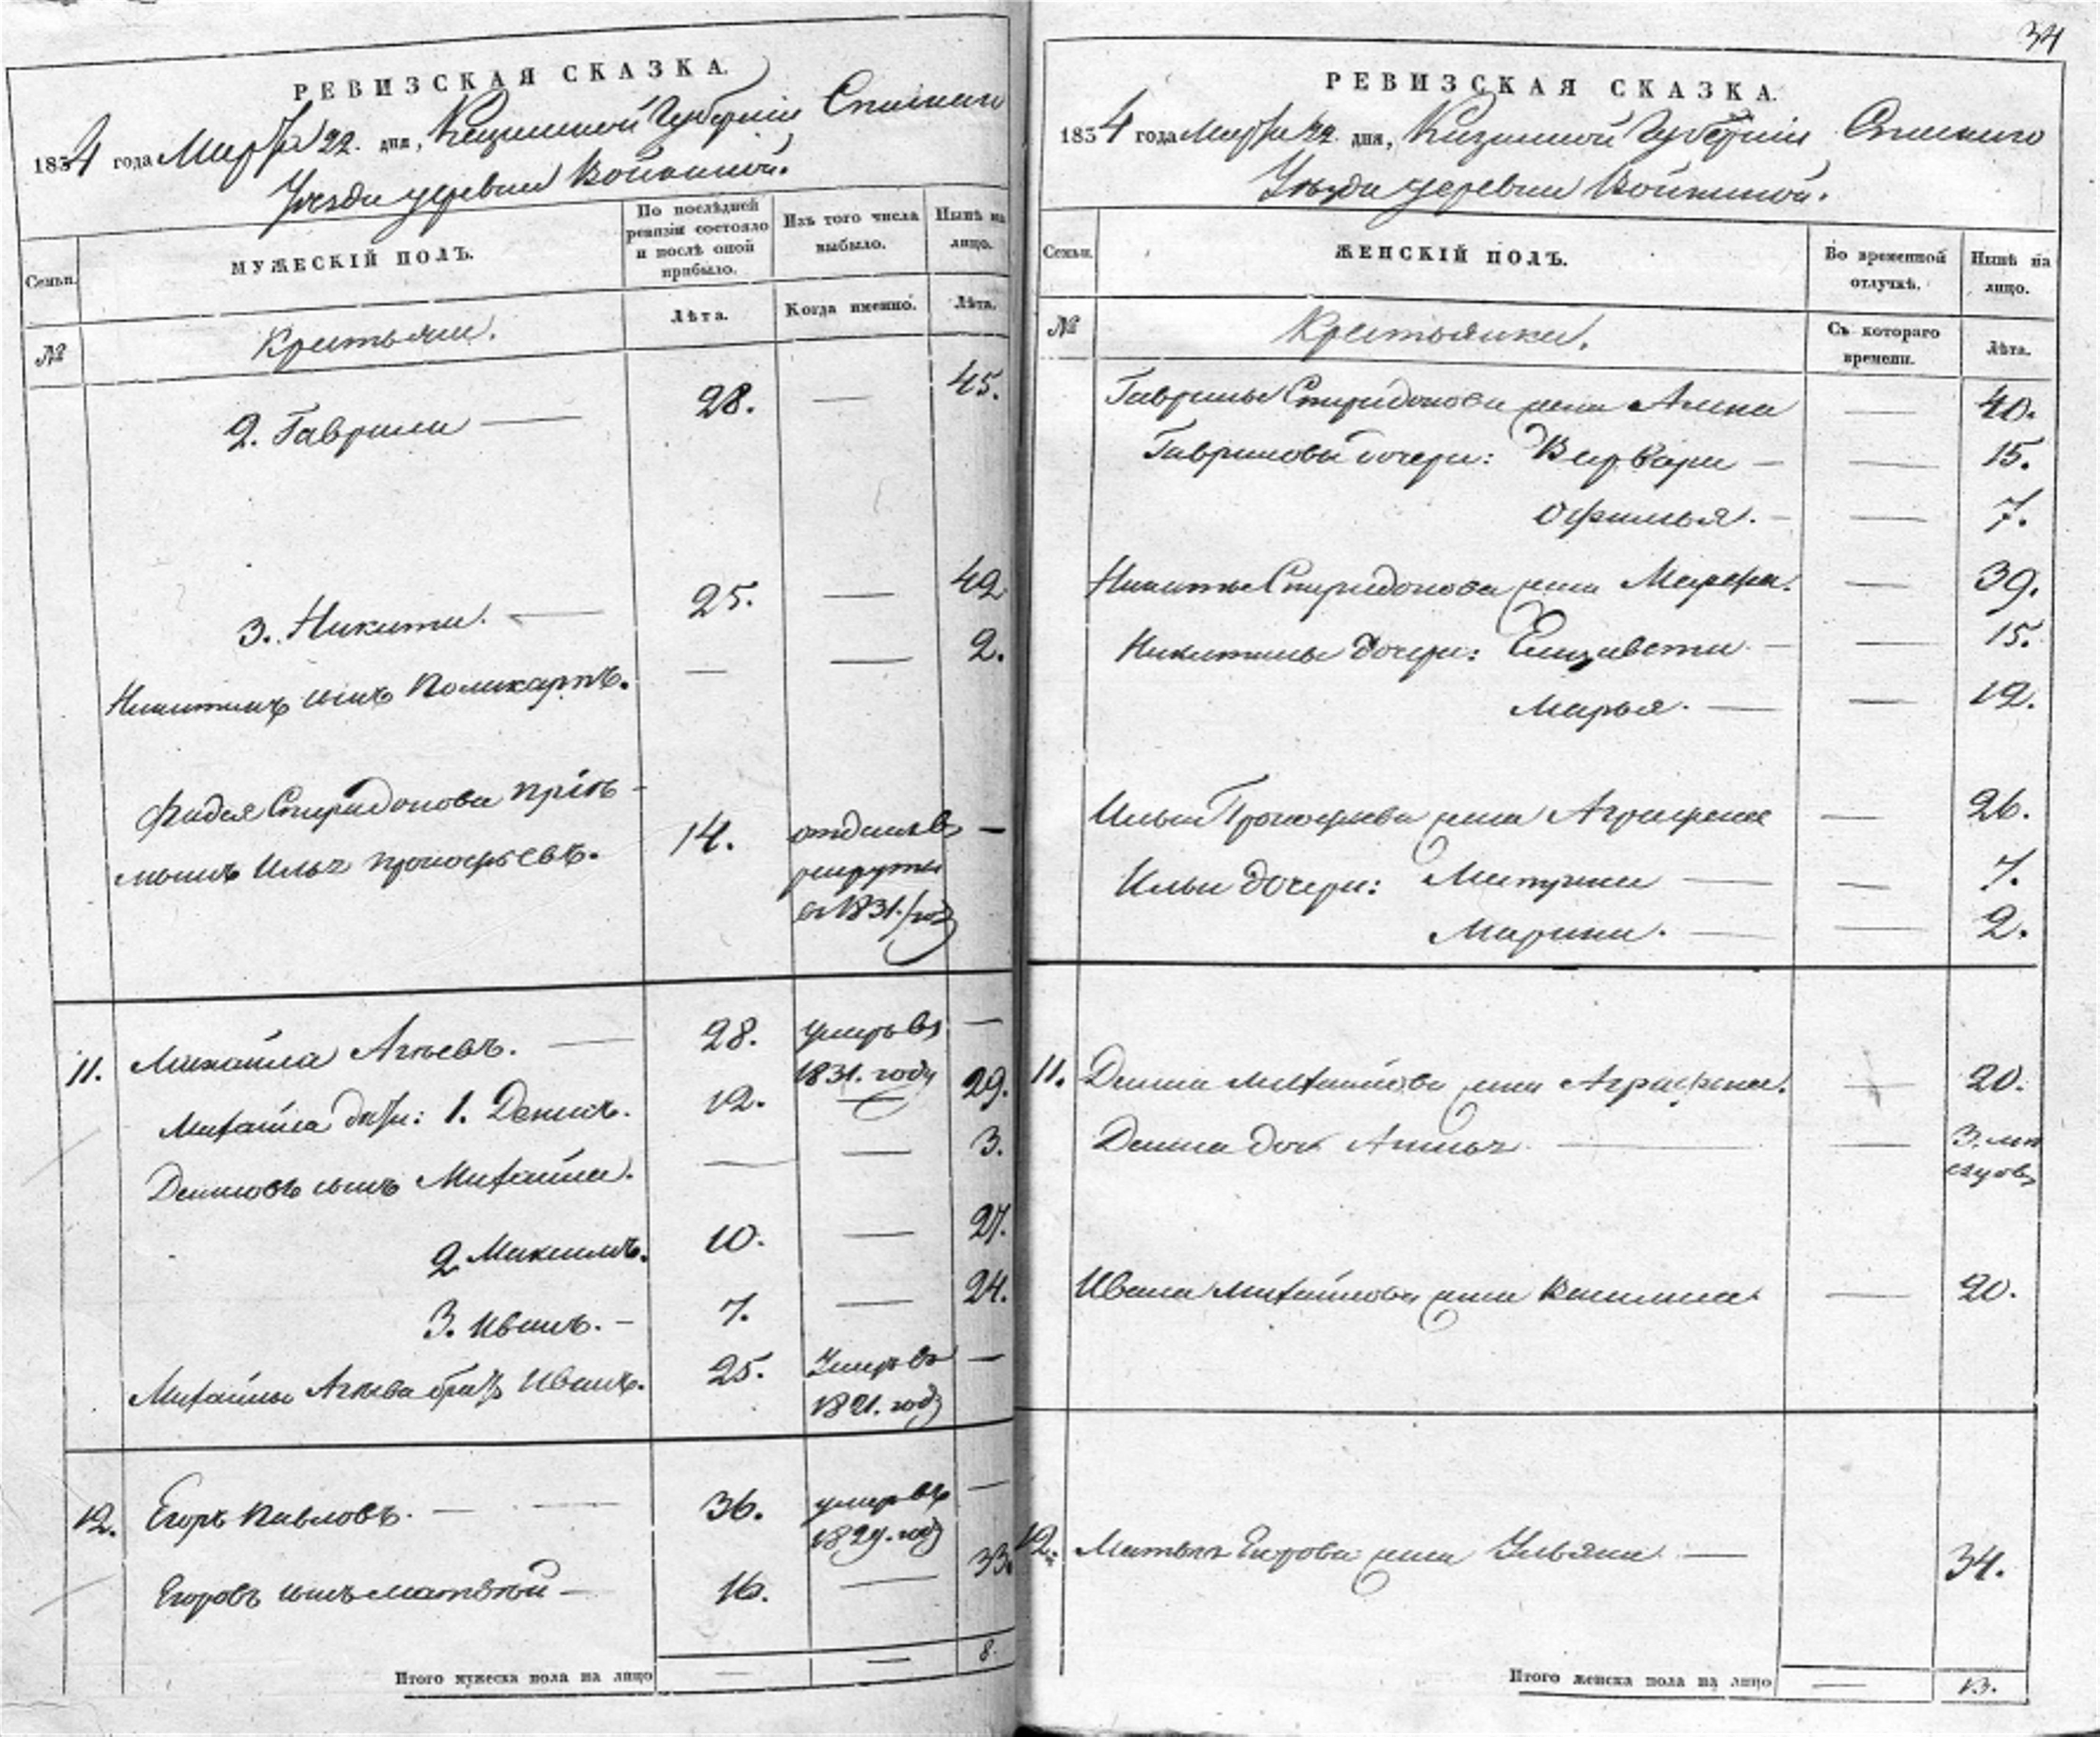 РЕВИЗСКАЯ СКАЗКА.
1834 года Марта 22. дня, Казанской Губернiи Спаскаго
Уезда деревни Войкиной.
Семьи.
МУЖЕСКІЙ ПОЛЪ.
По послѣдней ревизіи состояло и послѣ оной прибыло.
Изъ того числа выбыло.
Нынѣ на лицо.
№
Крестьяне.
Лѣта.
Когда именно.
Лѣта.
2. Гаврила — 28. — 45.
3. Никита. — 25. — 42
Никитинъ сынъ Поликарпъ. — — 2.
Фадея Спиридонова прiе-
мышъ Илья Прокофьевъ. 14. отданъ въ —
рекруты
в 1831. год
11. Михайла Агѣевъ. — 28. умеръ въ —
1831. году
Михайла дѣти: 1. Денисъ. 12. — 29.
Денисовъ сынъ Михайла. — — 3.
2 Максимъ. 10. — 27.
3. Иванъ. — 7. — 24.
Михайлы Агѣева братъ Иванъ. 25. Умеръ въ —
1821. году
12. Егоръ Павловъ. — — 36. умеръ въ —
1829. году
Егоровъ сынъ Матвѣй — 16. — 33.
Итого мужеска пола на лицо — — 8.
34
РЕВИЗСКАЯ СКАЗКА.
1834 года Марта 22. дня, Казанской Губернiи Спаскаго
Уѣзда деревни Войкиной.
Семьи.
ЖЕНСКІЙ ПОЛЪ.
Во временной отлучкѣ.
Нынѣ на лицо.
№
Крестьянки.
Съ котораго времени.
Лѣта.
Гаврилы Спиридонова жена Алена — 40.
Гавриловы дочери: Варвара — — 15.
Офимья. — — 7.
Никиты Спиридонова жена Марфа. — 39.
Никитины дочери: Елизавета — — 15.
Марья. — — 12.
Ильи Прокофьева жена Аграфена — 26.
Ильи дочери: — — 7.
Марина. — — 2.
11. Дениса Михайлова жена Аграфена. — 20.
Дениса доч — — 3. мѣ
сяцовъ
Ивана Михайлова жена Василиса — 20.
12. Матвѣя Егорова жена Ульяна — 34.
Итого женска пола на лицо — 13.